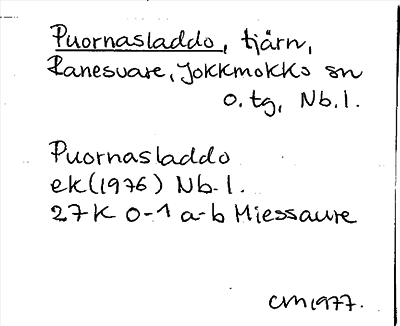 Puornasladdo, tjärn,
Ranesvare, Jokkmokks sn
o. tg, Nb. l.
Puornasladdo
ek (1976) Nb. l.
27K 0-1 a-b Miessaure
CM 1977.